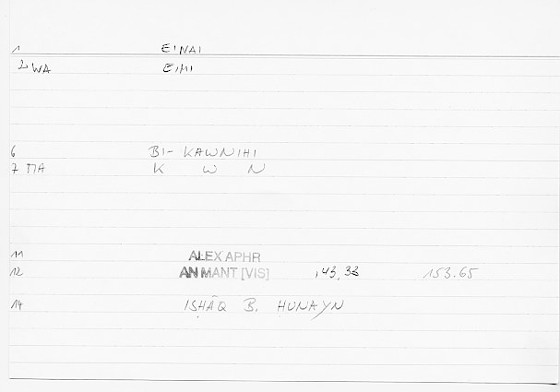 1 EINAI
2 WA EIMI
6 BI- KAWNIHI
7 ΠA K W N
11 ALEX APHR
12 AN MANT [VIS] 143,33 153.65
14 ISḤĀQ B. ḤUNAYN